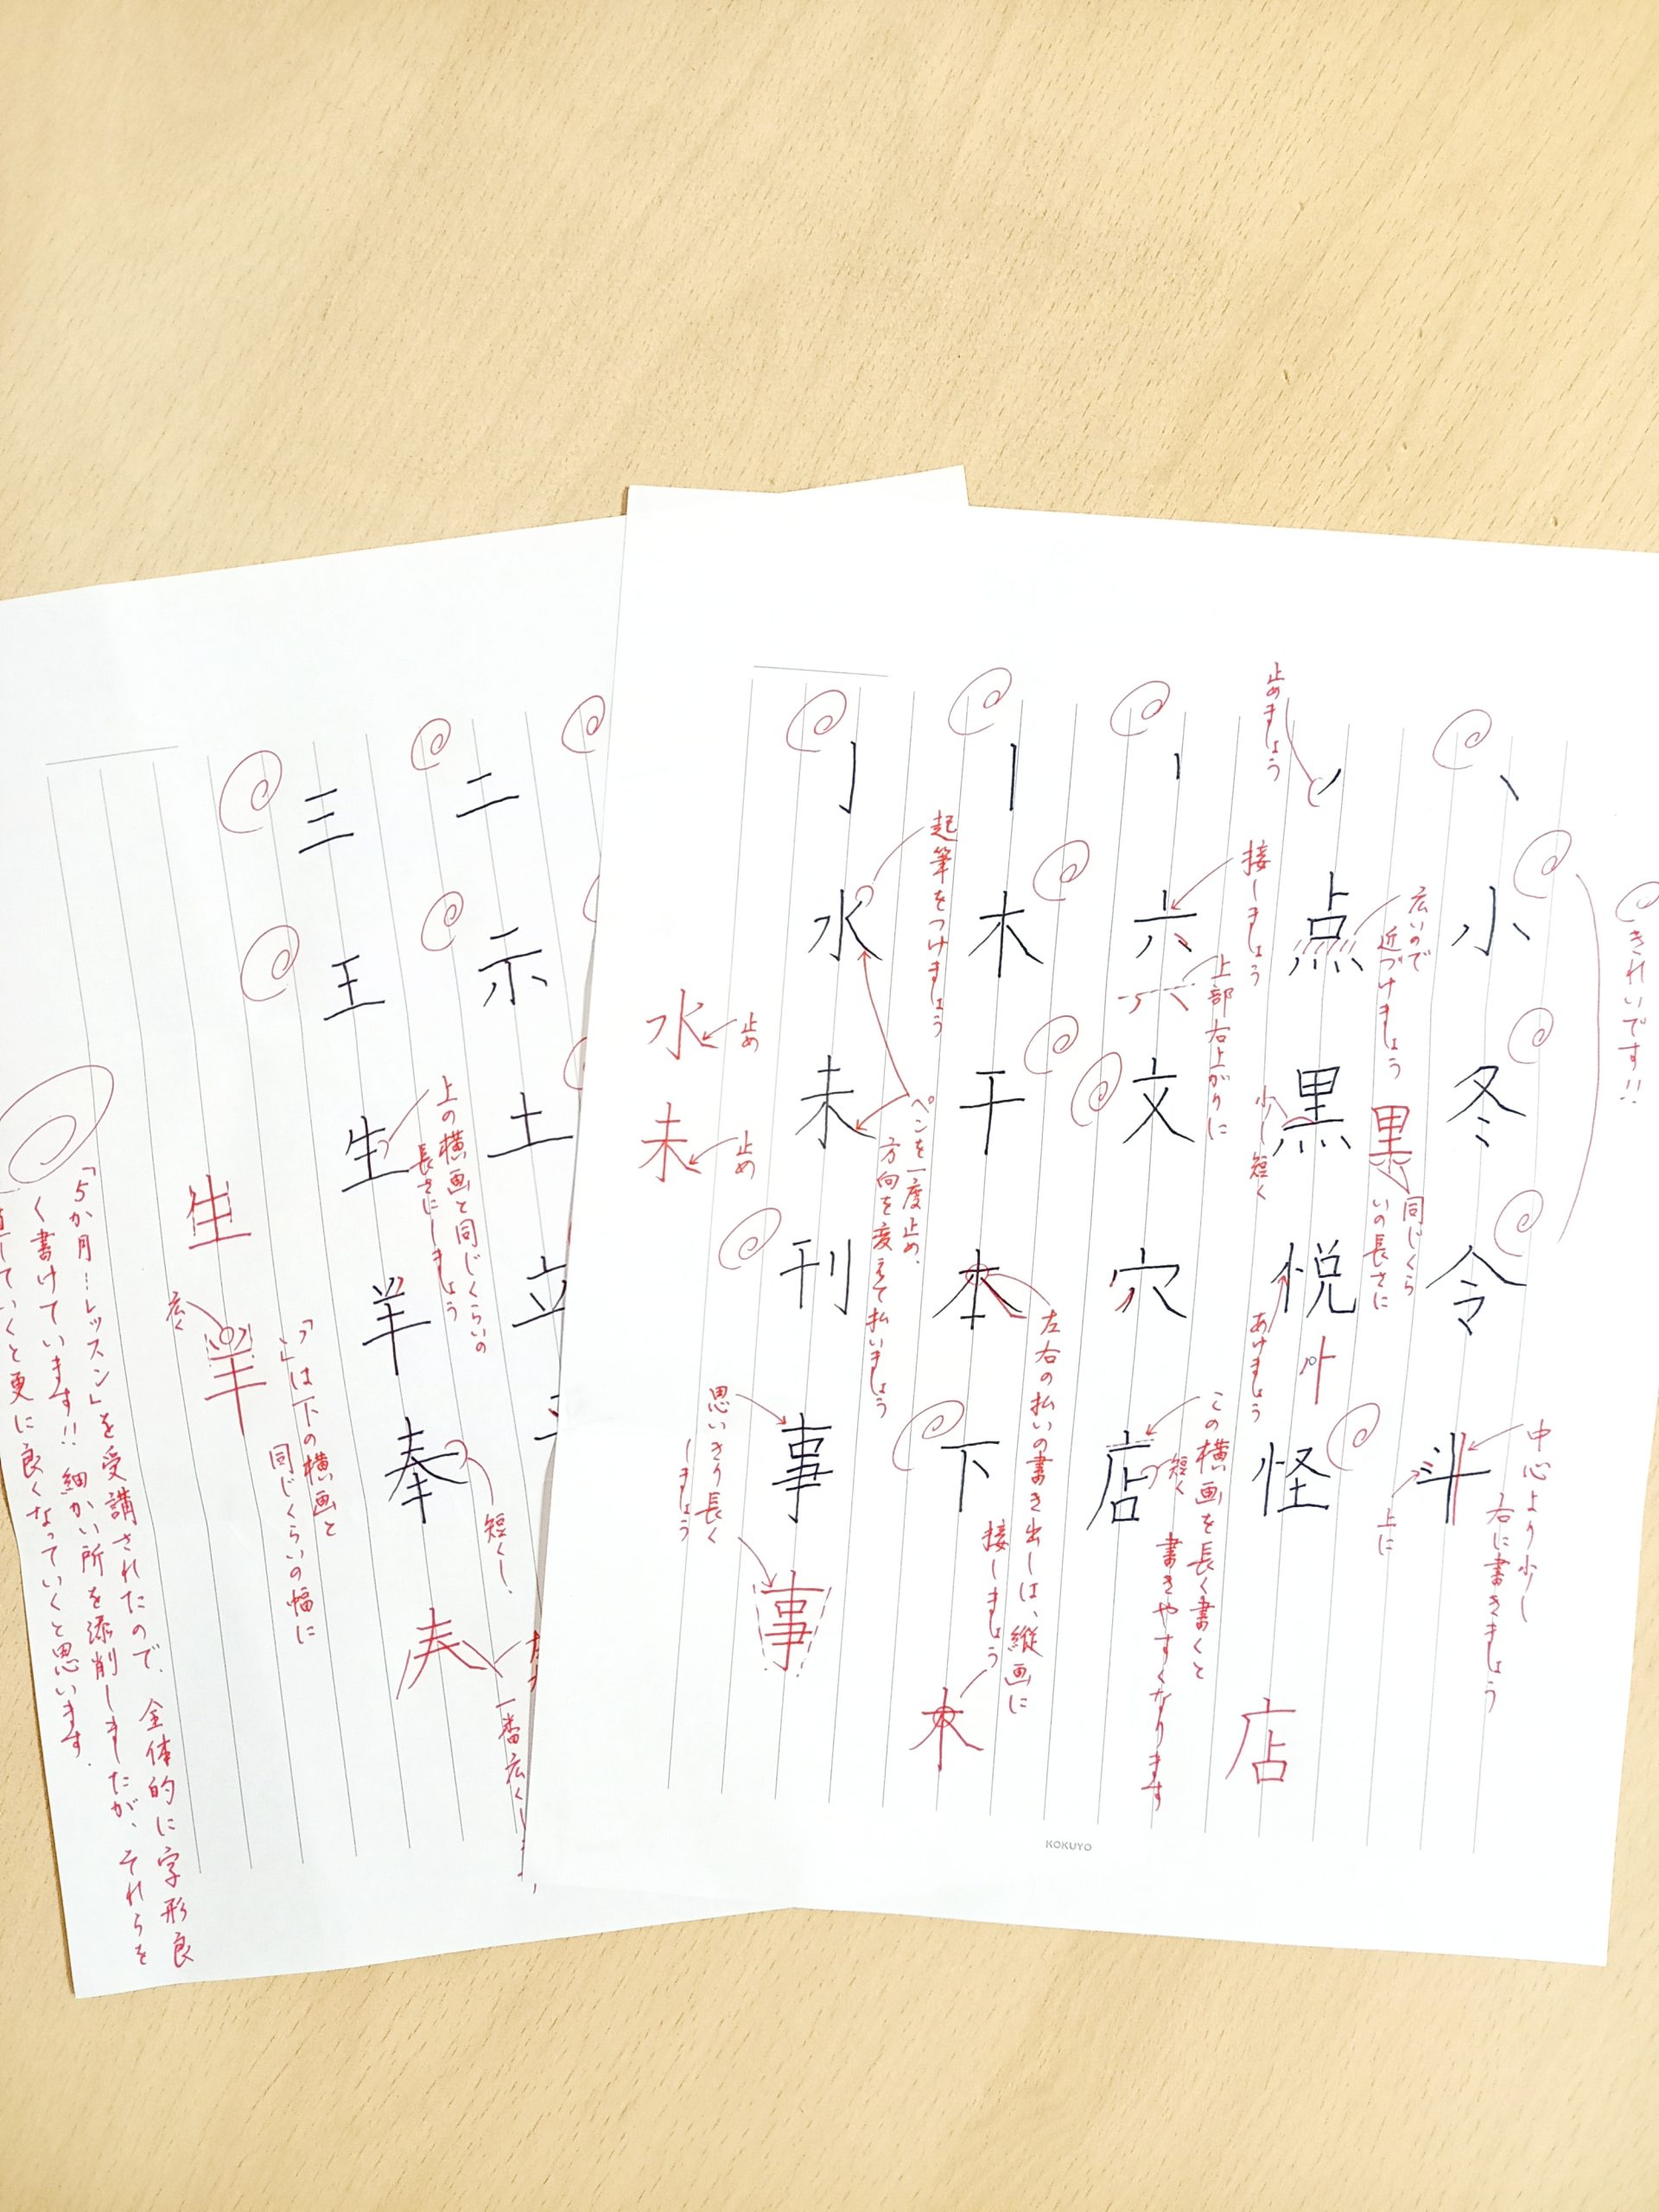 きれいです!!
小
冬
令
斗
中心より少し
右に書きましょう
上に
止めましょう
点
黒
悦
怪
広いので
近づけましょう
黒
同じくら
いの長さに
少し短く
あけましょう
六
文
穴
店
接しましょう
上部右上がりに
この横画を長く書くと
書きやすくなります
短く
店
木
干
本
下
左右の払いの書き出しは、縦画に
接しましょう
木
水
未
刊
事
起筆をつけましょう
ペンを一度止め、
方向を変えて払いましょう
水
止め
未
止め
思いきり長く
しましょう
事
KOKUYO
二
示
土
立
三
王
生
羊
奉
上の横画と同じくらいの
長さにしましょう
短くし、
一番広くし
生
広く
羊
「丷」は下の横画と
同じくらいの幅に
「5か月…レッスン」を受講されたので、全体的に字形良
く書けています!!細かい所を添削しましたが、それらを
していくと更に良くなっていくと思います。